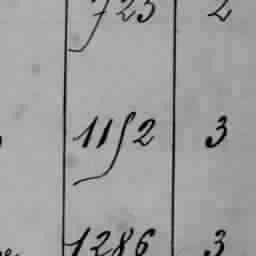 723 2
1152 3
1286 3